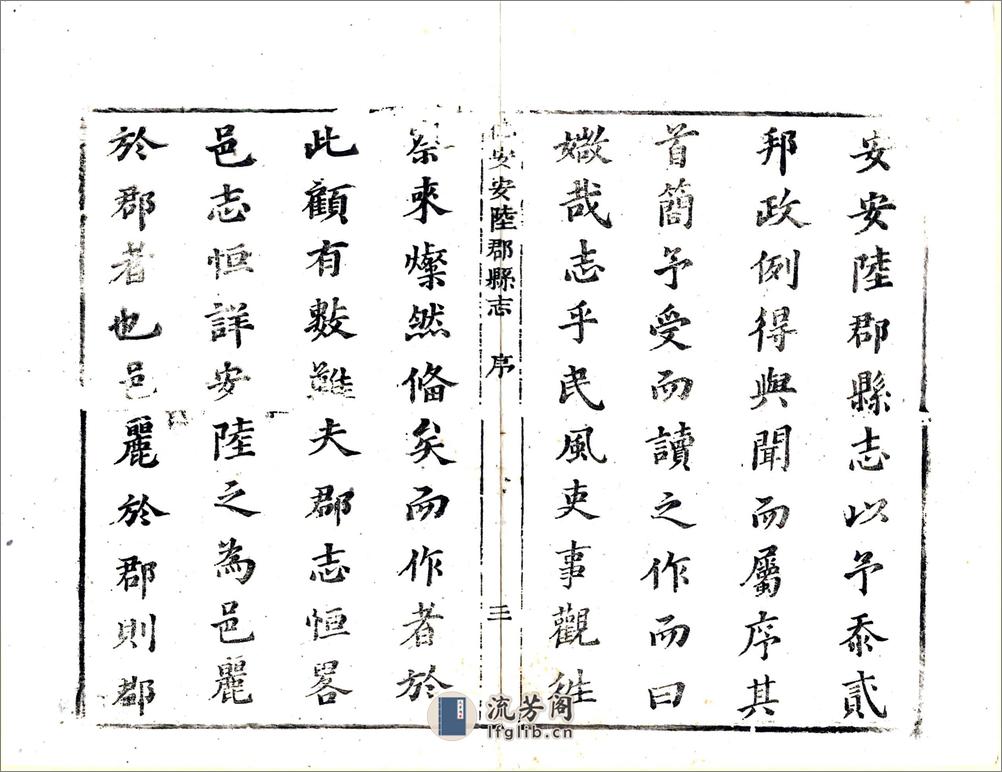 安安陸郡縣志以予忝貳
邦政例得與聞而屬序其
首簡予受而讀之作而曰
媺哉志乎民風吏事觀往
安安陸郡縣志 序 三
來燦然俻矣而作者於
此顧有數難夫郡志恒畧
邑志恒詳安陸之為邑麗
於郡者也邑麗於郡則郡
流芳阁
lfglib.cn